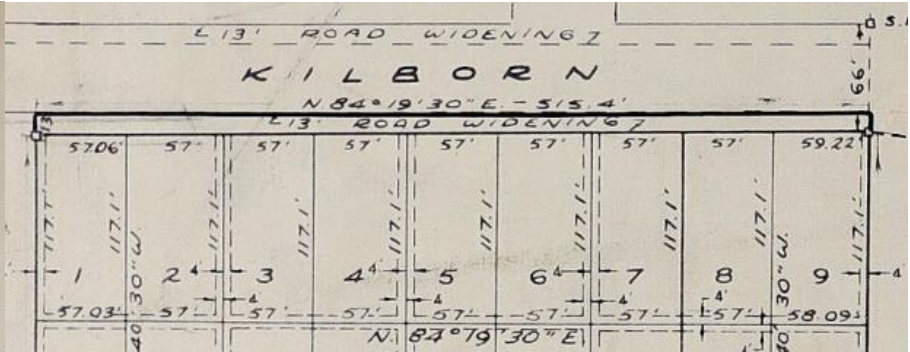 L 13' ROAD WIDENING 7
S.
KILBORN
66'
N. 84° 19' 30" E. - 515.4'
13'
L 13' ROAD WIDENING 7
57.06' 57' 57' 57' 57' 57' 57' 57' 59.22'
117.1' 117.1' 117.1' 117.1' 117.1' 117.1' 117.1' 117.1' 117.1' 117.1'
30" W. 30" W.
1 2 4' 3 4 4' 5 6 4' 7 8 9 4'
4' 4' 4' 4'
57.03' 57' 57' 57' 57' 57' 57' 57' 58.09'
40' 40'
N. 84° 19' 30" E